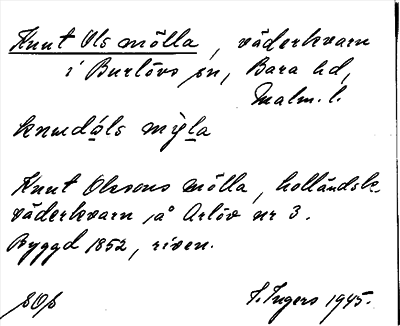 Knut Ols mölla, väderkvarn
i Burlövs sn, Bara hd,
Malm. l.
knudåls mỳla
Knut Olssons mölla, holländsk-
väderkvarn på Arlöv nr 3.
Byggd 1852, riven.
I. Ingers 1945.